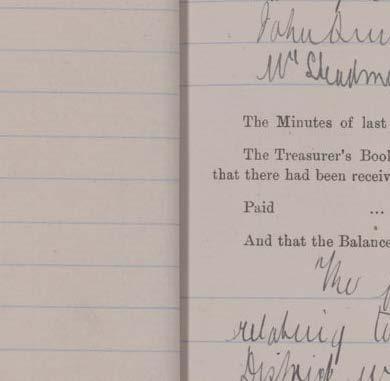 John
Wm Steadma
The Minutes of last
The Treasurer's Book
that there had been receiv
Paid ...
And that the Balance
The
relating to
District